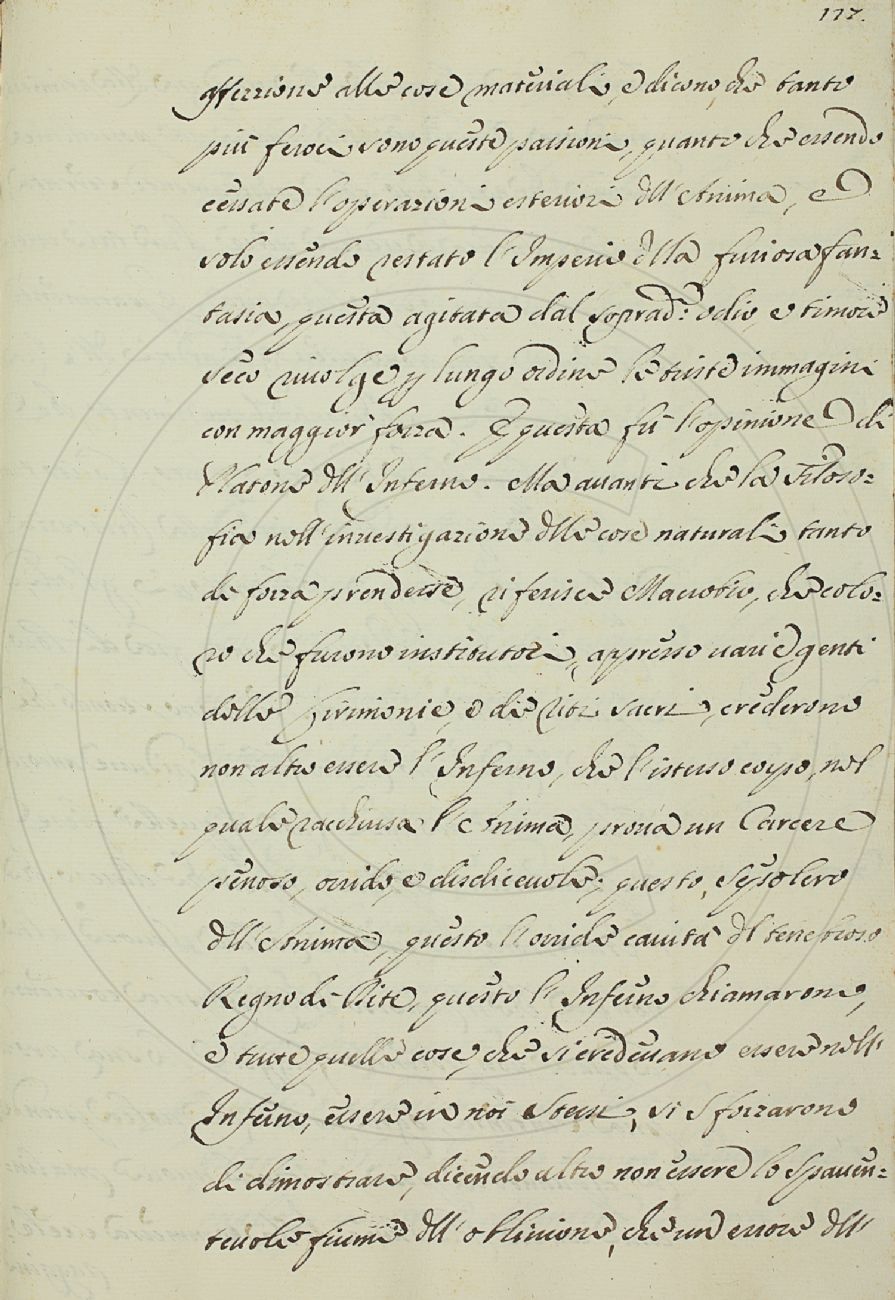 117.
affezzione alle cose materiali, e dicono, che tanto
più feroci sono queste passioni, quanto che essendo
cessate l'operazioni esteriori dell'Anima, e
solo essendo restato l'Imperio della furiosa fan=
tasia, questa agitata dal soprad:° odio, e timore
seco rivolge p lungo ordine le triste immagini
con maggior forza. E questa fù l'opinione di
Platone dell'Inferno. Ma avanti che la Filoso=
fia nell'investigazione delle cose naturali tanto
di forza prendesse, riferisce Macrobio, che colo=
ro che furono institutori, appresso varie genti
delle Cirimonie, e di Riti sacri, crederono
non altro essere l'Inferno, che l'istesso corpo, nel
quale racchiusa l'Anima, prova un Carcere
penoso, orrido, e disdicevole; questo, sepolcro
dell'Anima, questo l'orride cavità del tenebroso
Regno di Dite, questo l'Inferno chiamarono,
e tutte quelle cose, che si credevano essere nell'
Inferno, essere in noi stessi, si sforzarono
di dimostrare, dicendo altro non essere lo spaven=
tevole fiume dell'oblivione, che un errore dell'